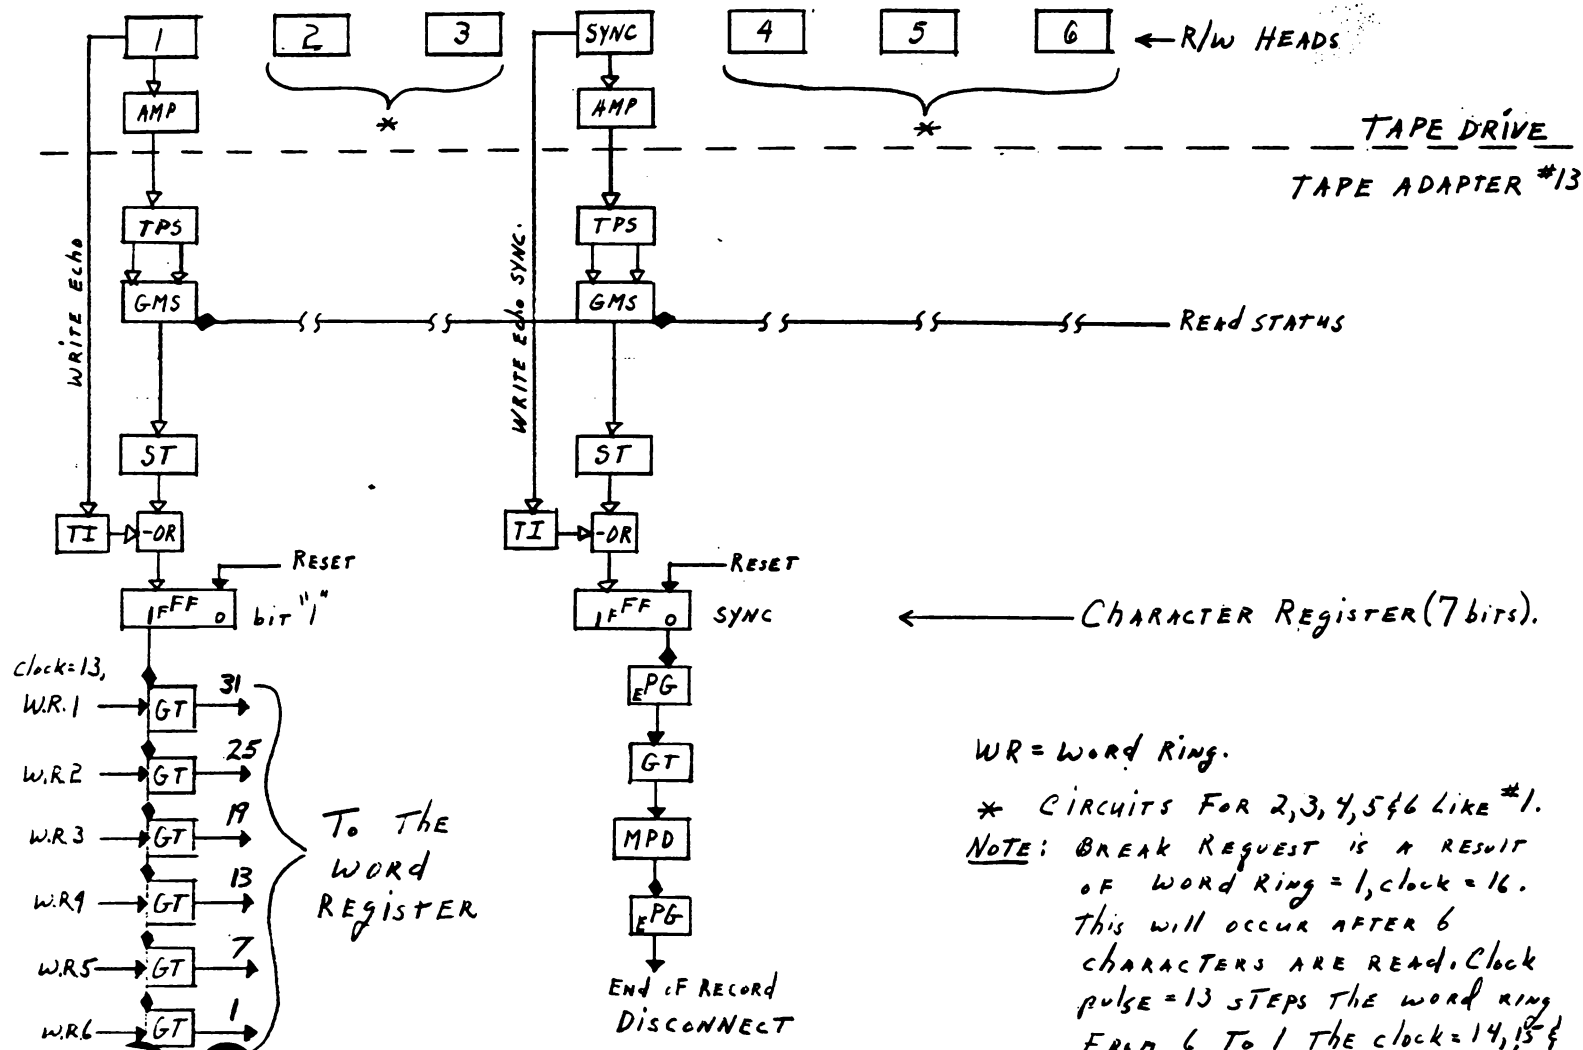 1 2 3 SYNC 4 5 6 ← R/W HEADS
AMP * AMP *
TAPE DRIVE
TAPE ADAPTER #13
TPS TPS
WRITE Echo
WRITE Echo SYNC.
GMS GMS
READ STATUS
ST ST
TI -OR TI -OR
RESET RESET
1 F FF 0 bit "1" 1 F FF 0 SYNC ← CHARACTER REgisTER (7 bits).
Clock=13,
W.R. 1 GT 31
W.R.2 GT 25
W.R.3 GT 19
W.R4 GT 13
W.R5 GT 7
W.R.6 GT 1
To The
WORD
REgisTER
E PG
GT
MPD
E PG
End OF RECORD
DISCONNECT
WR = WORD Ring.
* CIRCUITS FOR 2,3,4,5&6 Like #1.
NOTE: BREAK REQUEST is A RESULT
OF WORD Ring = 1, clock = 16.
This will occur AFTER 6
CHARACTERS ARE READ. Clock
pulse = 13 sTEPS THE word RING
FROM 6 To 1 THE clock = 14, 15 &